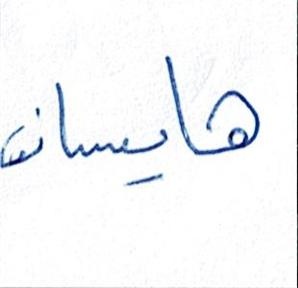 هايسانه